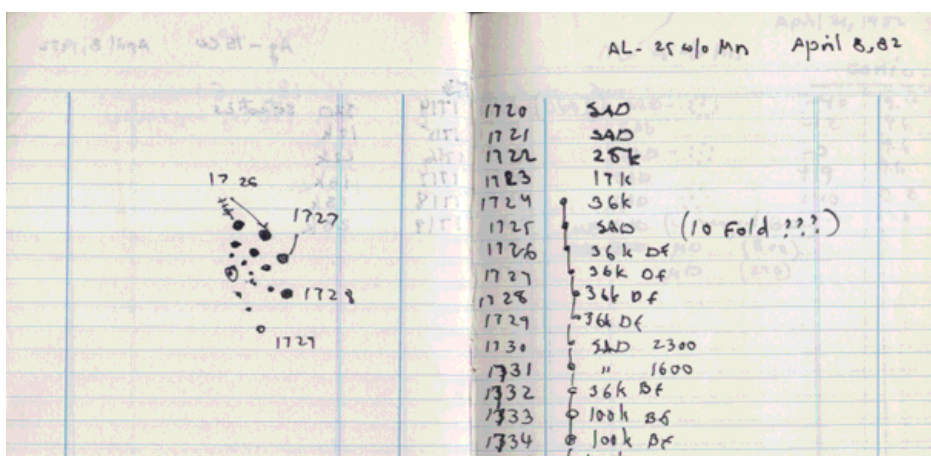 AL-25 w/o Mn April 8, 82
1726
1727
1728
1729
1720 SAD
1721 SAD
1722 25k
1723 17k
1724 36k
1725 SAD (10 Fold ???)
1726 36k DF
1727 36k DF
1728 36k DF
1729 36k DF
1730 SAD 2300
1731 " 1600
1732 36k BF
1733 100k BF
1734 100k BF